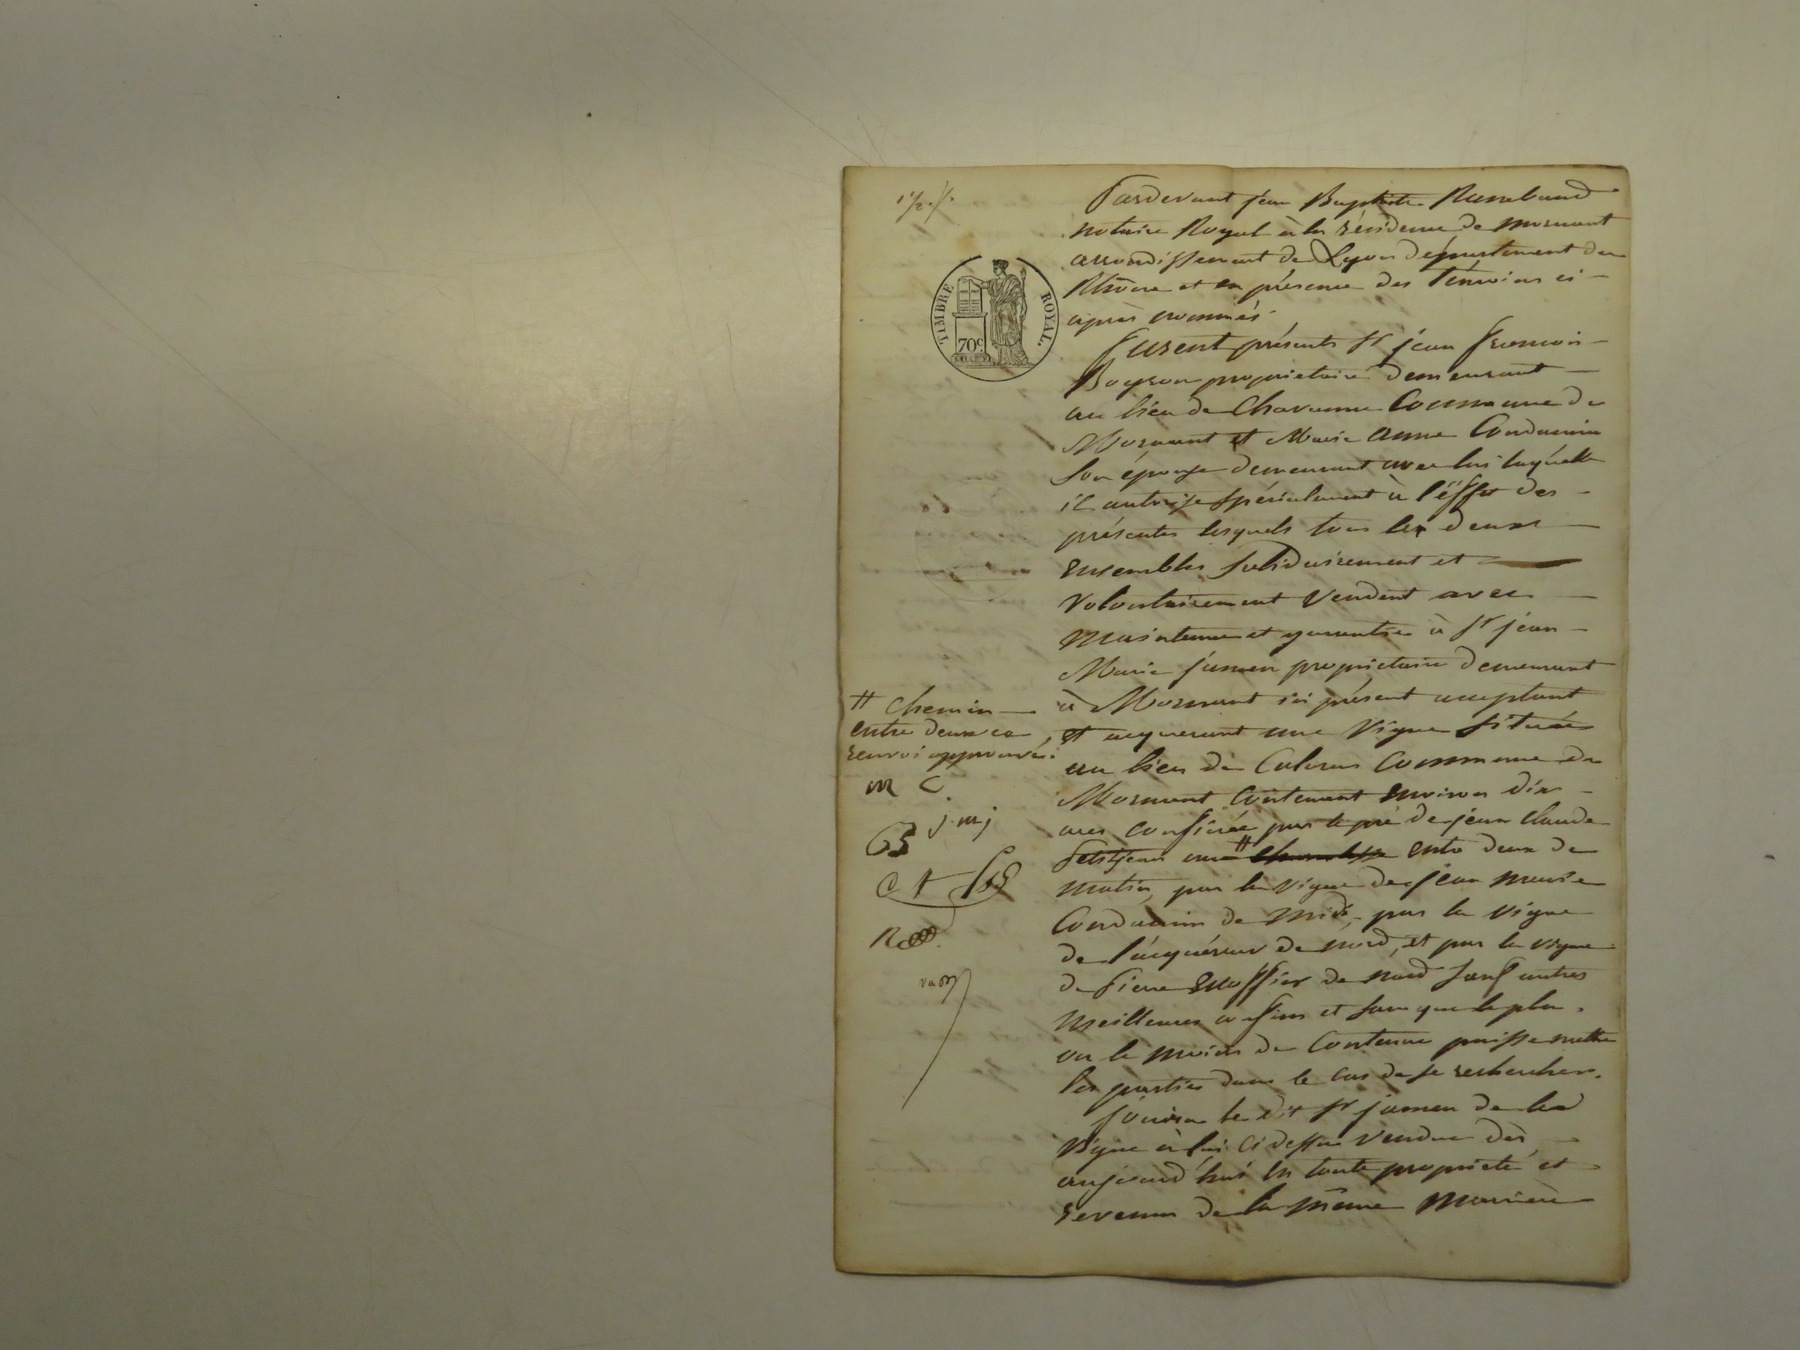 Pardevant jean Baptiste Rambaud
notaire Royal à la résidence de mornant
arrondissement de Lyon département du
Rhône et en présence des Témoins ci-
après nommés.
TIMBRE ROYAL.
70c
furent présents Sr jean françois
Boyron propriétaire demeurant
au lieu de Chavanne Commune de
Mornant et Marie anne Condamin
Son épouse demeurant avec lui laquelle
il autorise Spécialement à l'effet des
présentes lesquels tous les deux
Ensembles Solidairement et
Volontairement Vendent avec
Maintenue et garantie à Sr jean
Marie jamen propriétaire demeurant
à Mornant ici présent acceptant
et acquerant une Vigne Située
au lieu de Commune de
Mornant Contenant Environ dix
ares Confinée par le pré de jean Claude
# entre deux de
matin, par la Vigne de jean marie
Condamin de Midi, par la Vigne
de l'acquéreur de nord, et par la vigne
de Pierre de nord Sauf autres
Meilleures Confins et Sans que le plus
ou le moins de Contenue puisse mettre
les parties dans le cas de se rechercher.
jouira le dit Sr jamen de la
Vigne à lui Ci dessus Vendue dès
aujourd'hui En toute propriété et
revenus de la même Manière
# Chemin
entre deux
renvoi approuvé.
m C.
j. m j